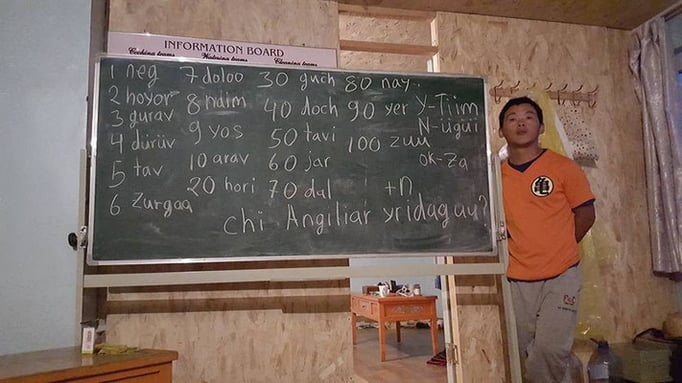 INFORMATION BOARD
Cooking teams Watering teams Cleaning teams
1 neg
2 hoyor
3 gurav
4 durüv
5 tav
6 zurgaa
7 doloo
8 naim
9 yos
10 arav
20 hori
30 guch
40 doch
50 tavi
60 jar
70 dal
80 nay
90 yer
100 zuu
+n
Y-Tiim
N-ügüi
ok-Za
chi Angiliar yridaguu?
亀